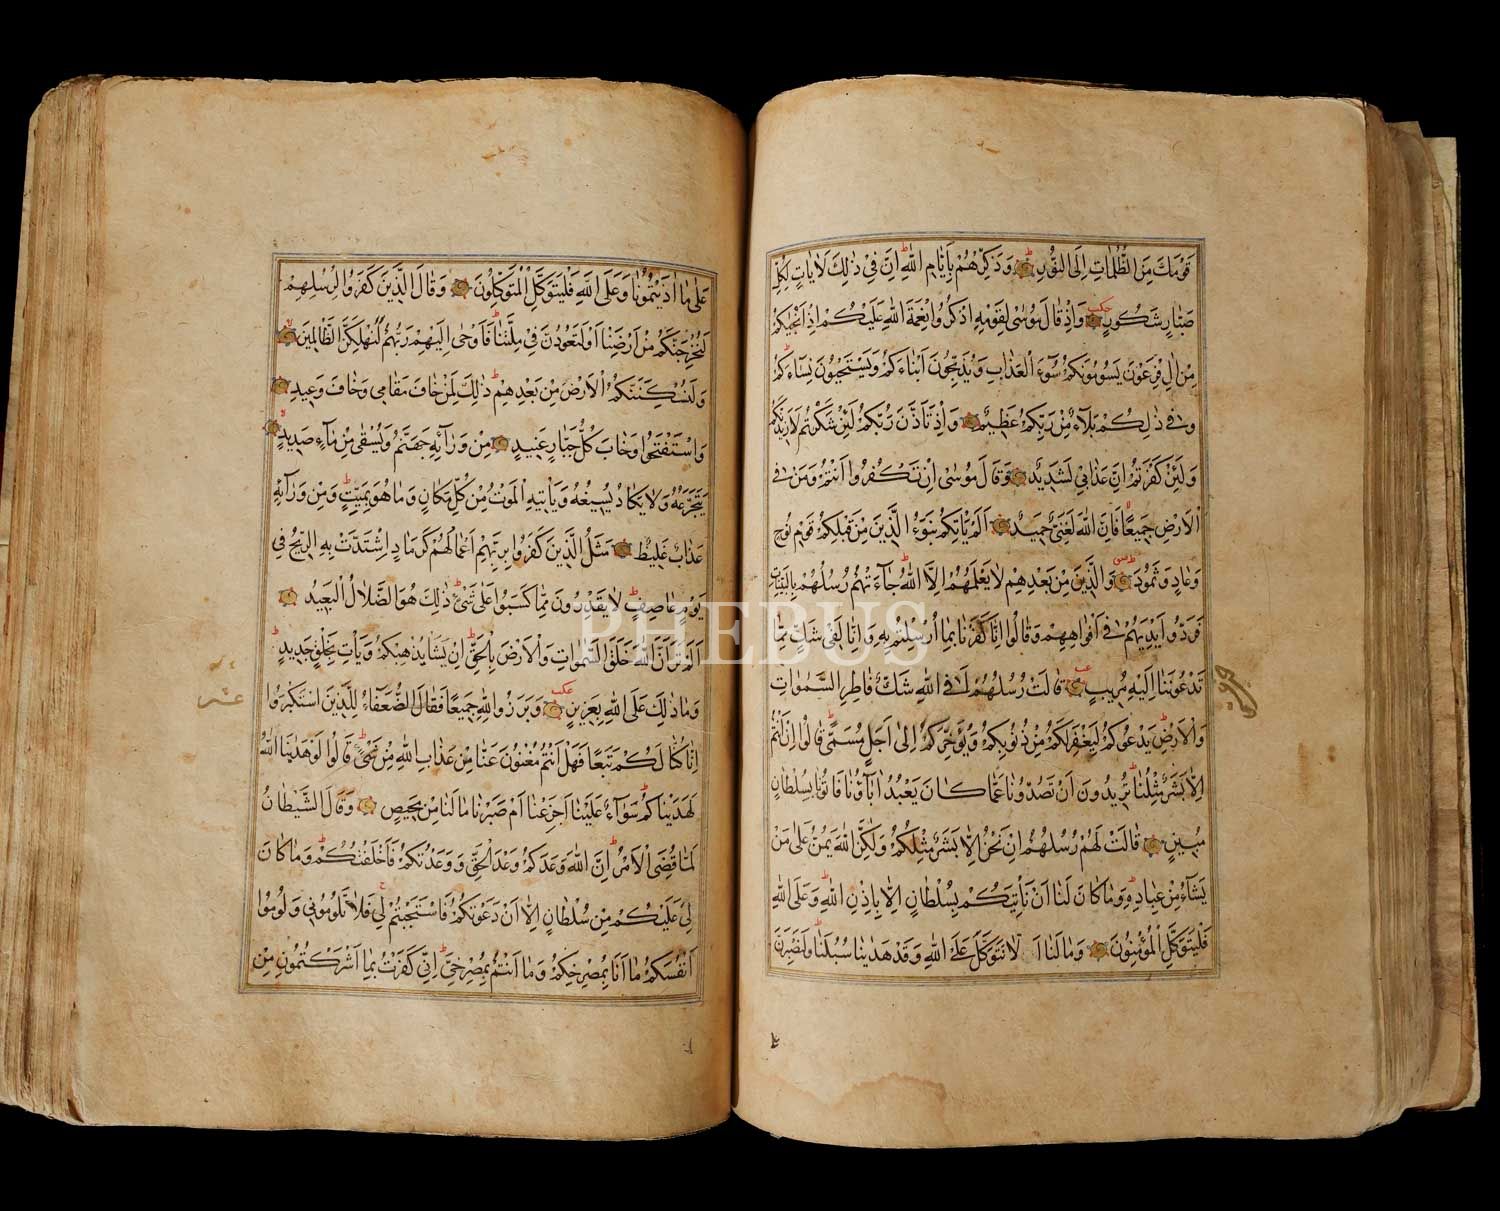 قَوْمَكَ مِنَ الظُّلُمَاتِ اِلَى النُّورِ وَذَكِّرْهُمْ بِاَيَّامِ اللهِ اِنَّ فِي ذٰلِكَ لَاٰيَاتٍ لِكُلِّ
صَبَّارٍ شَكُورٍ وَاِذْ قَالَ مُوسٰى لِقَوْمِهِ اذْكُرُوا نِعْمَةَ اللهِ عَلَيْكُمْ اِذْ اَنْجٰيكُمْ
مِنْ اٰلِ فِرْعَوْنَ يَسُومُونَكُمْ سُوٓءَ الْعَذَابِ وَيُذَبِّحُونَ اَبْنَاءَكُمْ وَيَسْتَحْيُونَ نِسَاءَكُمْ
وَفِي ذٰلِكُمْ بَلَآءٌ مِنْ رَبِّكُمْ عَظِيمٌ وَاِذْ تَاَذَّنَ رَبُّكُمْ لَئِنْ شَكَرْتُمْ لَاَزِيدَنَّكُمْ
وَلَئِنْ كَفَرْتُمْ اِنَّ عَذَابِي لَشَدِيدٌ وَقَالَ مُوسٰى اِنْ تَكْفُرُوا اَنْتُمْ وَمَنْ فِي
الْاَرْضِ جَمِيعًا فَاِنَّ اللهَ لَغَنِيٌّ حَمِيدٌ اَلَمْ يَاْتِكُمْ نَبَؤُا الَّذِينَ مِنْ قَبْلِكُمْ قَوْمِ نُوحٍ
وَعَادٍ وَثَمُودَ وَالَّذِينَ مِنْ بَعْدِهِمْ لَا يَعْلَمُهُمْ اِلَّا اللهُ جَآءَتْهُمْ رُسُلُهُمْ بِالْبَيِّنَاتِ
فَرَدُّوا اَيْدِيَهُمْ فِي اَفْوَاهِهِمْ وَقَالُوا اِنَّا كَفَرْنَا بِمَا اُرْسِلْتُمْ بِهِ وَاِنَّا لَفِي شَكٍّ مِمَّا
تَدْعُونَنَا اِلَيْهِ مُرِيبٍ قَالَتْ رُسُلُهُمْ اَفِي اللهِ شَكٌّ فَاطِرِ السَّمٰوَاتِ
وَالْاَرْضِ يَدْعُوكُمْ لِيَغْفِرَ لَكُمْ مِنْ ذُنُوبِكُمْ وَيُؤَخِّرَكُمْ اِلٰى اَجَلٍ مُسَمًّى قَالُوا اِنْ اَنْتُمْ
اِلَّا بَشَرٌ مِثْلُنَا تُرِيدُونَ اَنْ تَصُدُّونَا عَمَّا كَانَ يَعْبُدُ اٰبَاؤُنَا فَاْتُونَا بِسُلْطَانٍ
مُبِينٍ قَالَتْ لَهُمْ رُسُلُهُمْ اِنْ نَحْنُ اِلَّا بَشَرٌ مِثْلُكُمْ وَلٰكِنَّ اللهَ يَمُنُّ عَلٰى مَنْ
يَشَآءُ مِنْ عِبَادِهِ وَمَا كَانَ لَنَا اَنْ نَاْتِيَكُمْ بِسُلْطَانٍ اِلَّا بِاِذْنِ اللهِ وَعَلَى اللهِ
فَلْيَتَوَكَّلِ الْمُؤْمِنُونَ وَمَا لَنَا اَلَّا نَتَوَكَّلَ عَلَى اللهِ وَقَدْ هَدٰينَا سُبُلَنَا وَلَنَصْبِرَنَّ
عَلٰى مَا اٰذَيْتُمُونَا وَعَلَى اللهِ فَلْيَتَوَكَّلِ الْمُتَوَكِّلُونَ وَقَالَ الَّذِينَ كَفَرُوا لِرُسُلِهِمْ
لَنُخْرِجَنَّكُمْ مِنْ اَرْضِنَا اَوْ لَتَعُودُنَّ فِي مِلَّتِنَا فَاَوْحٰى اِلَيْهِمْ رَبُّهُمْ لَنُهْلِكَنَّ الظَّالِمِينَ
وَلَنُسْكِنَنَّكُمُ الْاَرْضَ مِنْ بَعْدِهِمْ ذٰلِكَ لِمَنْ خَافَ مَقَامِي وَخَافَ وَعِيدِ
وَاسْتَفْتَحُوا وَخَابَ كُلُّ جَبَّارٍ عَنِيدٍ مِنْ وَرَآئِهِ جَهَنَّمُ وَيُسْقٰى مِنْ مَآءٍ صَدِيدٍ
يَتَجَرَّعُهُ وَلَا يَكَادُ يُسِيغُهُ وَيَاْتِيهِ الْمَوْتُ مِنْ كُلِّ مَكَانٍ وَمَا هُوَ بِمَيِّتٍ وَمِنْ وَرَآئِهِ
عَذَابٌ غَلِيظٌ مَثَلُ الَّذِينَ كَفَرُوا بِرَبِّهِمْ اَعْمَالُهُمْ كَرَمَادٍ اشْتَدَّتْ بِهِ الرِّيحُ فِي
يَوْمٍ عَاصِفٍ لَا يَقْدِرُونَ مِمَّا كَسَبُوا عَلٰى شَيْءٍ ذٰلِكَ هُوَ الضَّلَالُ الْبَعِيدُ
اَلَمْ تَرَ اَنَّ اللهَ خَلَقَ السَّمٰوَاتِ وَالْاَرْضَ بِالْحَقِّ اِنْ يَشَاْ يُذْهِبْكُمْ وَيَاْتِ بِخَلْقٍ جَدِيدٍ
وَمَا ذٰلِكَ عَلَى اللهِ بِعَزِيزٍ وَبَرَزُوا لِلّٰهِ جَمِيعًا فَقَالَ الضُّعَفَاءُ لِلَّذِينَ اسْتَكْبَرُوا
اِنَّا كُنَّا لَكُمْ تَبَعًا فَهَلْ اَنْتُمْ مُغْنُونَ عَنَّا مِنْ عَذَابِ اللهِ مِنْ شَيْءٍ قَالُوا لَوْ هَدٰينَا اللهُ
لَهَدَيْنَاكُمْ سَوَآءٌ عَلَيْنَا اَجَزِعْنَا اَمْ صَبَرْنَا مَا لَنَا مِنْ مَحِيصٍ وَقَالَ الشَّيْطَانُ
لَمَّا قُضِيَ الْاَمْرُ اِنَّ اللهَ وَعَدَكُمْ وَعْدَ الْحَقِّ وَوَعَدْتُكُمْ فَاَخْلَفْتُكُمْ وَمَا كَانَ
لِيَ عَلَيْكُمْ مِنْ سُلْطَانٍ اِلَّا اَنْ دَعَوْتُكُمْ فَاسْتَجَبْتُمْ لِي فَلَا تَلُومُونِي وَلُومُوا
اَنْفُسَكُمْ مَا اَنَا بِمُصْرِخِكُمْ وَمَا اَنْتُمْ بِمُصْرِخِيَّ اِنِّي كَفَرْتُ بِمَا اَشْرَكْتُمُونِ مِنْ
PHEBUS